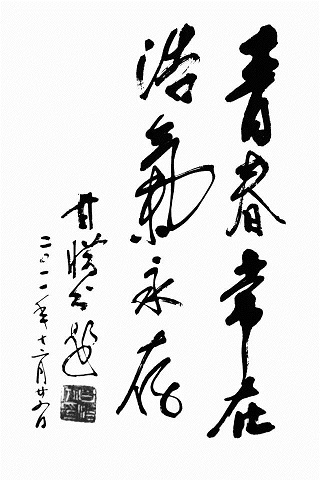 青春常在
浩氣永存
甘惜分題
二〇一一年十二月廿六日